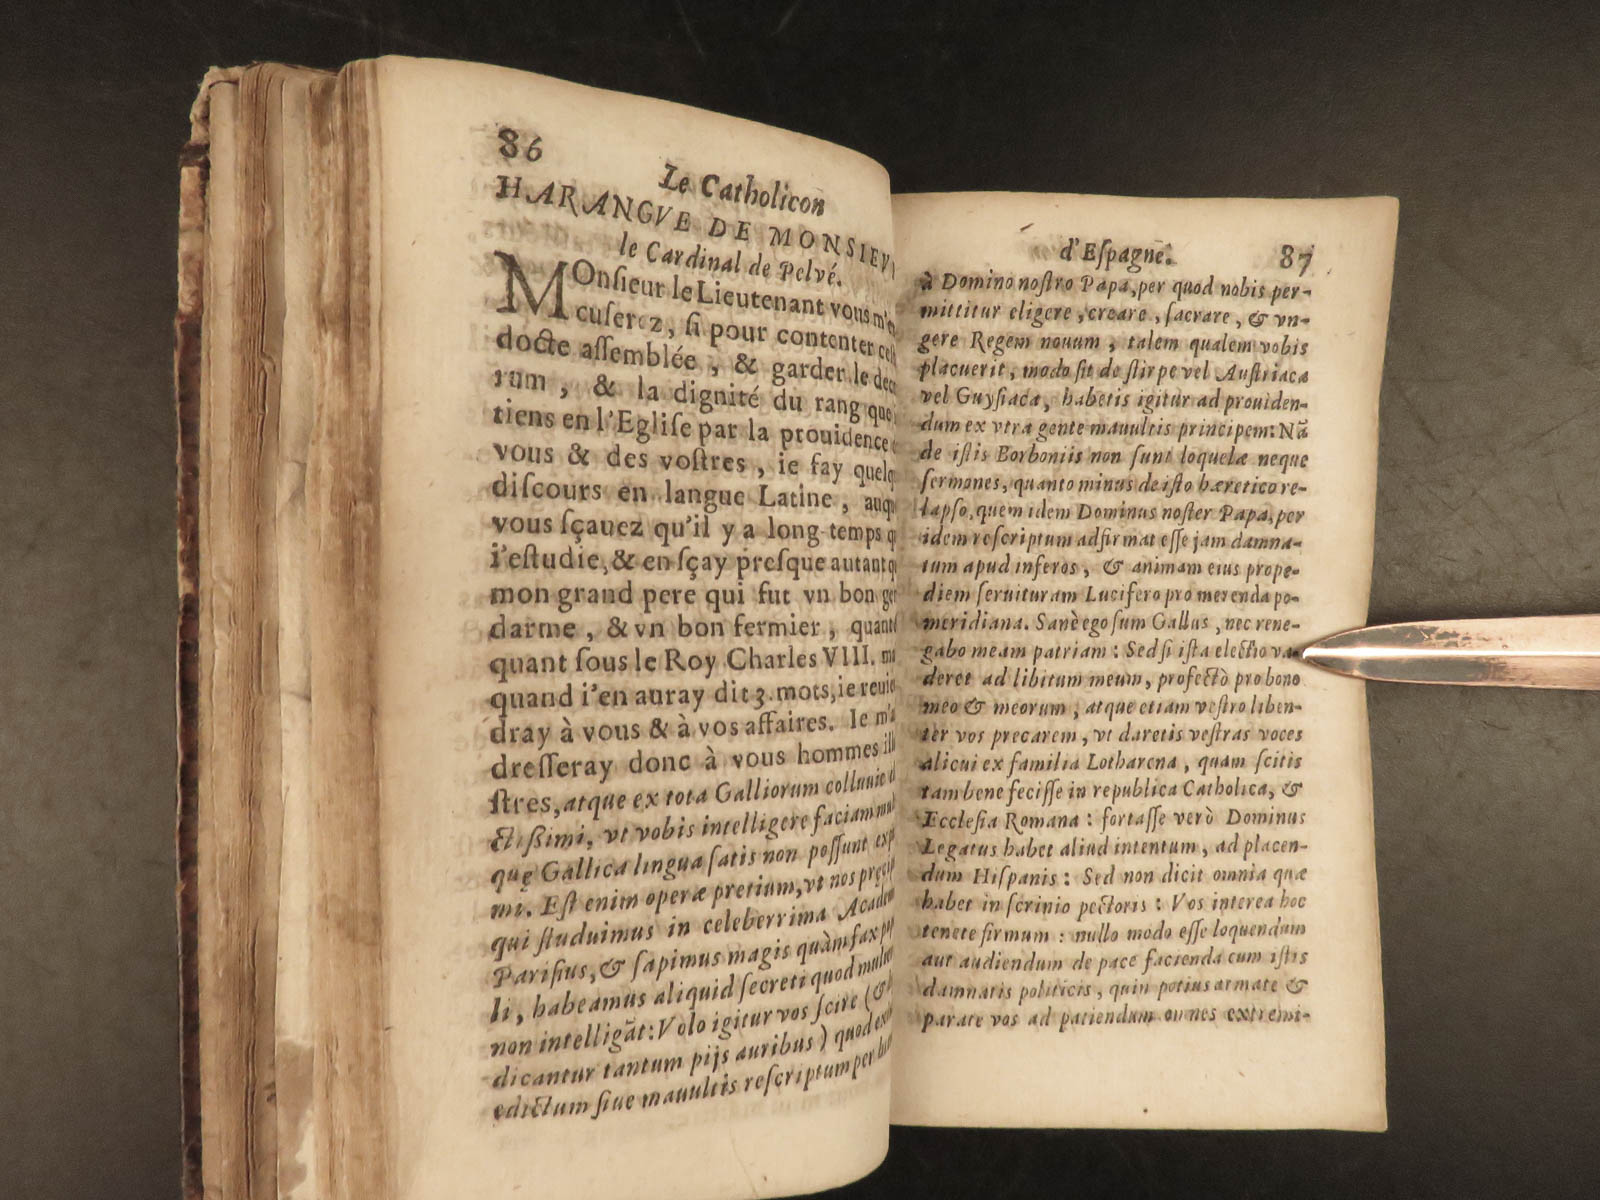 86
Le Catholicon
HARANGVE DE MONSIEV
le Cardinal de Pelvé.
MOnſieur le Lieutenant vous m'e
cuſerez, ſi pour contenter ceſt
docte aſſemblée, & garder le deco
rum, & la dignité du rang que
tiens en l'Egliſe par la prouidence
vous & des voſtres, ie fay quelq
diſcours en langue Latine, auqu
vous ſçauez qu'il y a long-temps q
i'eſtudie, & en ſçay preſque autant q
mon grand pere qui fut vn bon gen
darme, & vn bon fermier, quant
quant ſous le Roy Charles VIII. ma
quand i'en auray dit 3. mots, ie reuien
dray à vous & à vos affaires. Ie m'a
dreſſeray donc à vous hommes illu
ſtres, atque ex tota Galliorum colluuie
ctißimi, vt vobis intelligere faciam mul
quę Gallica lingua ſatis non poſſunt exp
mi. Eſt enim operæ pretium, vt nos pręcip
qui ſtuduimus in celeberrima Academ
Pariſius, & ſapimus magis quàm fax
li, habeamus aliquid ſecreti quod mulie
non intelligāt: Volo igitur vos ſcire (&
dicantur tantum piįs auribus) quod
edictum ſiue mauultis reſcriptum per
d'Eſpagne.
87
à Domino noſtro Papa, per quod nobis per-
mittitur eligere, creare, ſacrare, & vn-
gere Regem nouum, talem qualem vobis
placuerit, modo ſit de ſtirpe vel Auſtriaca
vel Guyſiaca, habetis igitur ad prouiden-
dum ex vtra gente mauultis principem: Nā
de iſtis Borboniis non ſunt loquelæ neque
ſermones, quanto minus de iſto hæretico re-
lapſo, quem idem Dominus noſter Papa, per
idem reſcriptum adfirmat eſſe jam damna-
tum apud inferos, & animam eius prope-
diem ſeruituram Lucifero pro merenda po-
meridiana. Sanè ego ſum Gallus, nec rene-
gabo meam patriam: Sed ſi iſta electio va-
deret ad libitum meum, profectò pro bono
meo & meorum, atque etiam veſtro liben-
ter vos precarem, vt daretis veſtras voces
alicui ex familia Lotharena, quam ſcitis
tam bene feciſſe in republica Catholica, &
Eccleſia Romana: fortaſſe verò Dominus
Legatus habet aliud intentum, ad placen-
dum Hiſpanis: Sed non dicit omnia quæ
habet in ſcrinio pectoris: Vos interea hoc
tenete firmum: nullo modo eſſe loquendum
aut audiendum de pace facienda cum iſtis
damnatis politicis, quin potius armate &
parate vos ad patiendum omnes extremi-